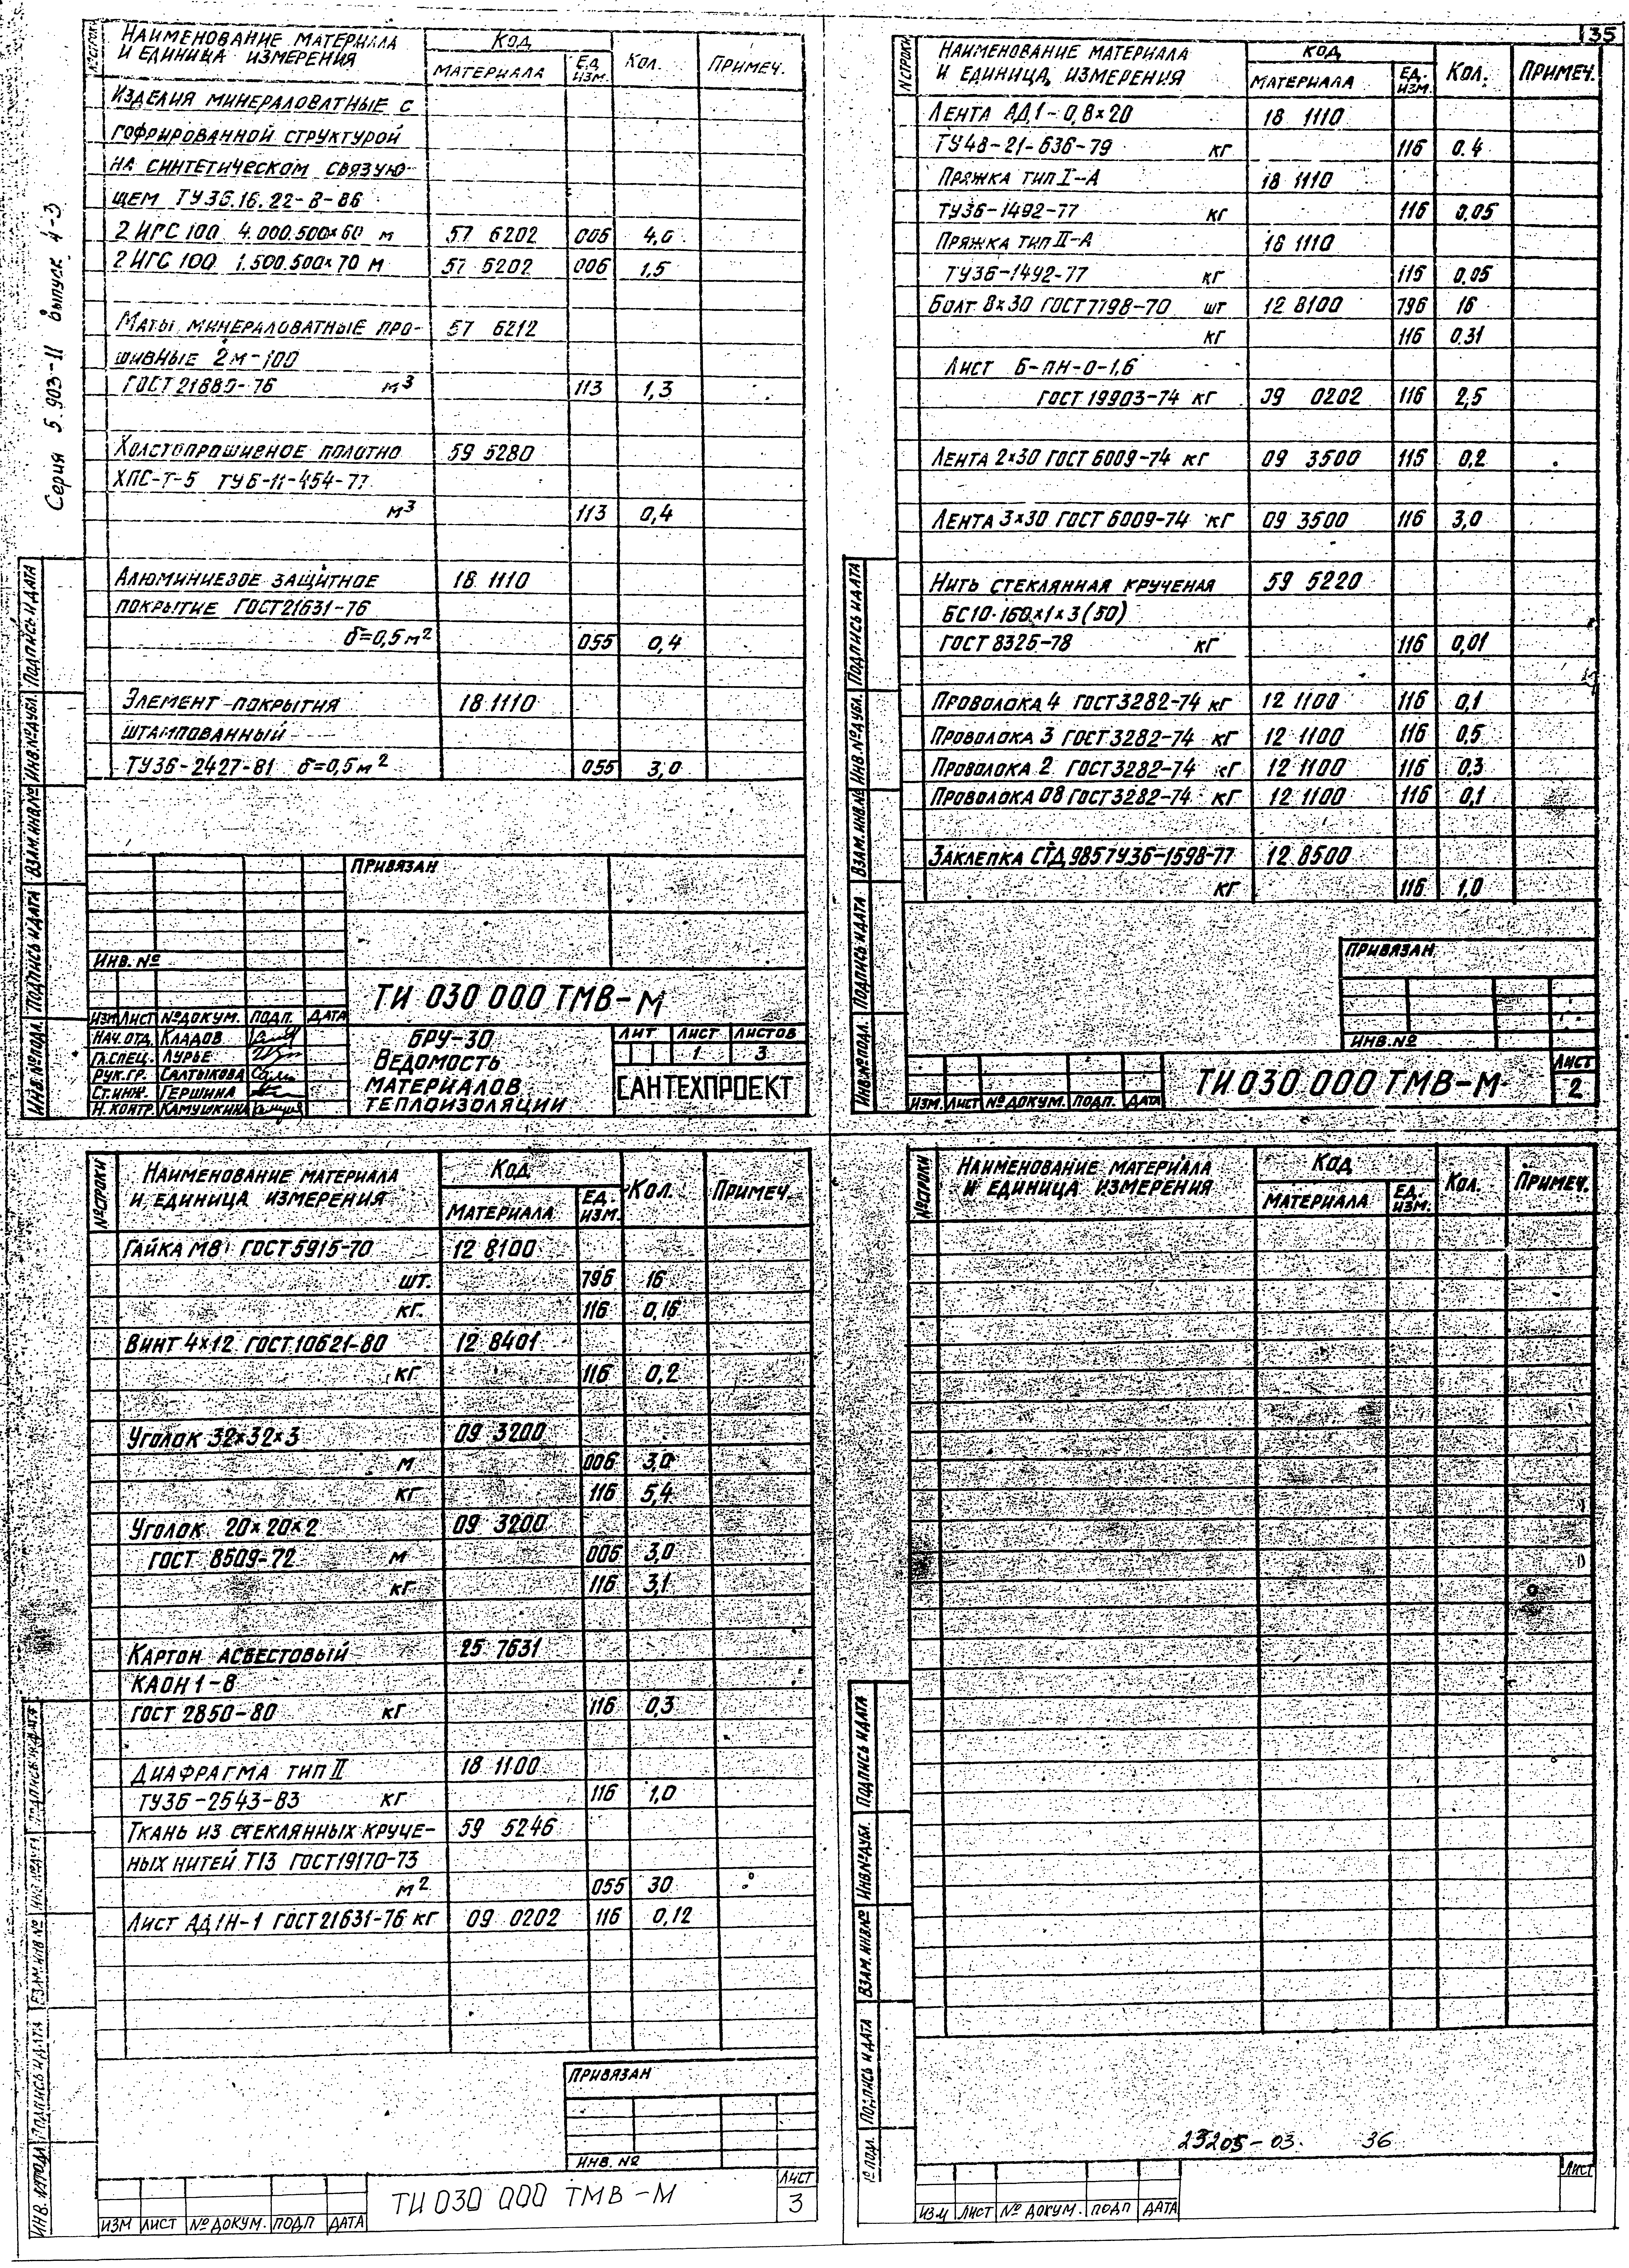 135
Серия 5 903-11 выпуск 4-3
№ строки
Наименование материала
и единица измерения
Код
материала
Ед. изм.
Кол.
Примеч.
Изделия минераловатные с
гофрированной структурой
на синтетическом связую-
щем ТУ36.16.22-8-86
2 ИГС 100 4.000.500×60 м 57 6202 006 4,0
2 ИГС 100 1.500.500×70 м 57 6202 006 1,5
Маты минераловатные про- 57 6212
шивные 2м-100
ГОСТ 21880-76 м³ 113 1,3
Холстопрошивное полотно 59 5280
ХПС-Т-5 ТУ6-11-454-77
м³ 113 0,4
Алюминиевое защитное 18 1110
покрытие ГОСТ21631-76
δ=0,5 м² 055 0,4
Элемент покрытия 18 1110
штампованный
ТУ36-2427-81 δ=0,5 м² 055 3,0
Привязан
Инв. №
ТИ 030 000 ТМВ-М
Изм Лист № докум. Подп. Дата
Нач. отд. Кладов
Гл. спец. Лурье
Рук. гр. Салтыкова
Ст. инж. Гершина
Н. контр. Камушкина
БРУ-30
Ведомость
материалов
теплоизоляции
Лит Лист Листов
1 3
САНТЕХПРОЕКТ
Инв. № подл. Подпись и дата Взам. инв. № Инв. № дубл. Подпись и дата
№ строки
Наименование материала
и единица измерения
Код
материала
Ед. изм.
Кол.
Примеч.
Лента АД1-0,8×20 18 1110
ТУ48-21-636-79 кг 116 0.4
Пряжка тип I-А 18 1110
ТУ36-1492-77 кг 116 0,05
Пряжка тип II-А 18 1110
ТУ36-1492-77 кг 116 0,05
Болт 8×30 ГОСТ7798-70 шт 12 8100 796 16
кг 116 0,31
Лист Б-ПН-О-1,6
ГОСТ 19903-74 кг 09 0202 116 2,5
Лента 2×30 ГОСТ 6009-74 кг 09 3500 116 0,2
Лента 3×30 ГОСТ 6009-74 кг 09 3500 116 3,0
Нить стеклянная крученая 59 5220
БС10·160×1×3(50)
ГОСТ 8325-78 кг 116 0,01
Проволока 4 ГОСТ3282-74 кг 12 1100 116 0,1
Проволока 3 ГОСТ3282-74 кг 12 1100 116 0,5
Проволока 2 ГОСТ3282-74 кг 12 1100 116 0,3
Проволока 08 ГОСТ3282-74 кг 12 1100 116 0,1
Заклепка СТД 985ТУ36-1598-77 12 8500
кг 116 1,0
Привязан
Инв. №
Изм. Лист № докум. Подп. Дата
ТИ 030 000 ТМВ-М
Лист
2
Инв. № подл. Подпись и дата Взам. инв. № Инв. № дубл. Подпись и дата
№ строки
Наименование материала
и единица измерения
Код
материала
Ед. изм.
Кол.
Примеч.
Гайка М8 ГОСТ5915-70 12 8100
шт. 796 16
кг. 116 0,16
Винт 4×12 ГОСТ10621-80 12 8401
кг 116 0,2
Уголок 32×32×3 09 3200
м 006 3,0
кг 116 5,4
Уголок 20×20×2 09 3200
ГОСТ 8509-72 м 006 3,0
кг 116 3,1
Картон асбестовый 25 7631
КАОН 1-8
ГОСТ 2850-80 кг 116 0,3
Диафрагма тип II 18 1100
ТУ36-2543-83 кг 116 1,0
Ткань из стеклянных круче- 59 5246
ных нитей Т13 ГОСТ19170-73
м² 055 30
Лист АД1Н-1 ГОСТ21631-76 кг 09 0202 116 0,12
Привязан
Инв. №
Изм Лист № докум. Подп Дата
ТИ 030 000 ТМВ-М
Лист
3
Инв. № подл Подпись и дата Взам. инв № Инв № дубл Подпись и дата
№ строки
Наименование материала
и единица измерения
Код
материала
Ед. изм.
Кол.
Примеч.
23205-03. 36
Изм Лист № докум. Подп Дата
Лист
№ подл. Подпись и дата Взам. инв. № Инв. № дубл. Подпись и дата